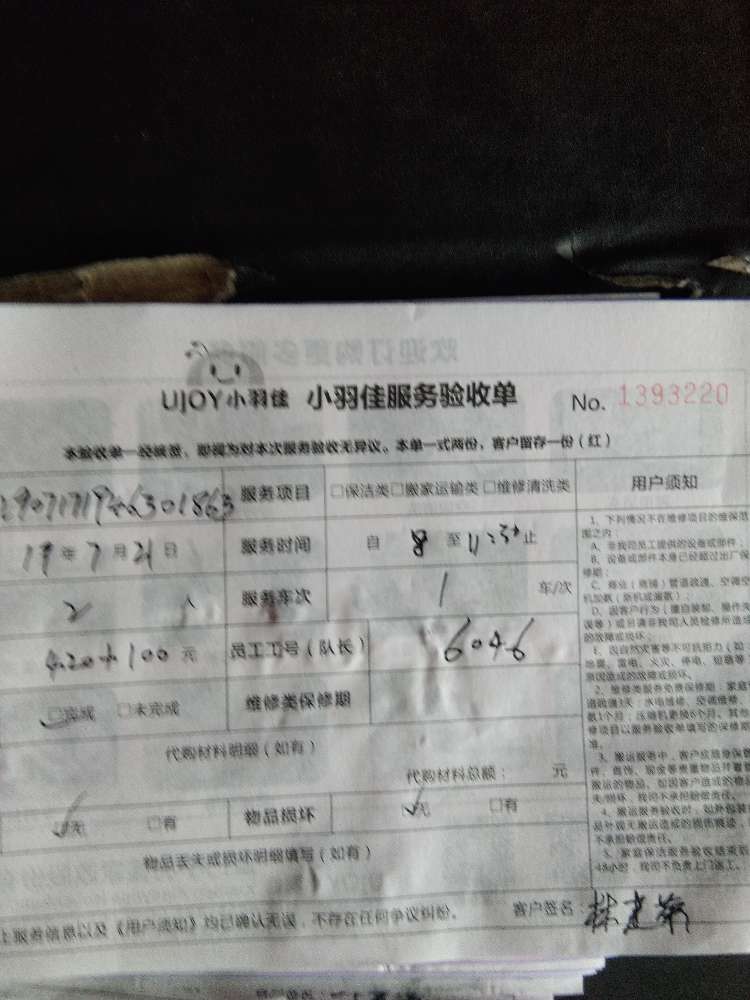 UJOY小羽佳 小羽佳服务验收单 No. 1393220
本验收单一经填签，即视为对本次服务验收无异议。本单一式两份，客户留存一份（红）
服务项目 □保洁类□搬家运输类 □维修清洗类 用户须知
19年7月21日 服务时间 自 8 至 11:30 止
2 人 服务车次 1 车/次
420+100 元 员工工号（队长） 6046
□完成 □未完成 维修类保修期
代购材料明细（如有）
代购材料总额： 元
□无 □有 物品损坏 □无 □有
物品丢失或损坏明细填写（如有）
上服务信息以及《用户须知》均已确认无误，不存在任何争议纠纷。 客户签名：
1、下列情况不在维修项目的维保范
围之内：
A、非我司员工提供的设备或部件；
B、设备或部件本身已经超过出厂保
修期；
C、商业（商铺）管道疏通、空调空
D、因客户行为（擅自装卸、操作失
误等）或且请非我司人员检修所造成
的故障或损坏；
地震、雷电、火灾、停电、短路等
原因造成的故障或损坏。
2、维修类服务免费保修期：家庭管
道疏通3天；水电维修、空调维修、
数1个月；压缩机更换6个月。其他
修项目以服务验收单填写的保修期
准。
3、搬运服务中，客户应自身保管
件、首饰、现金等贵重物品并看管
搬运的物品，如因客户造成的物品
失/损坏，我司不承担赔偿责任。
4、搬运服务验收时，如外包装
品外观无搬运造成的损伤痕迹，
不承担赔偿责任。
5、家庭保洁服务验收结束后
48小时，我司不负责上门返工。